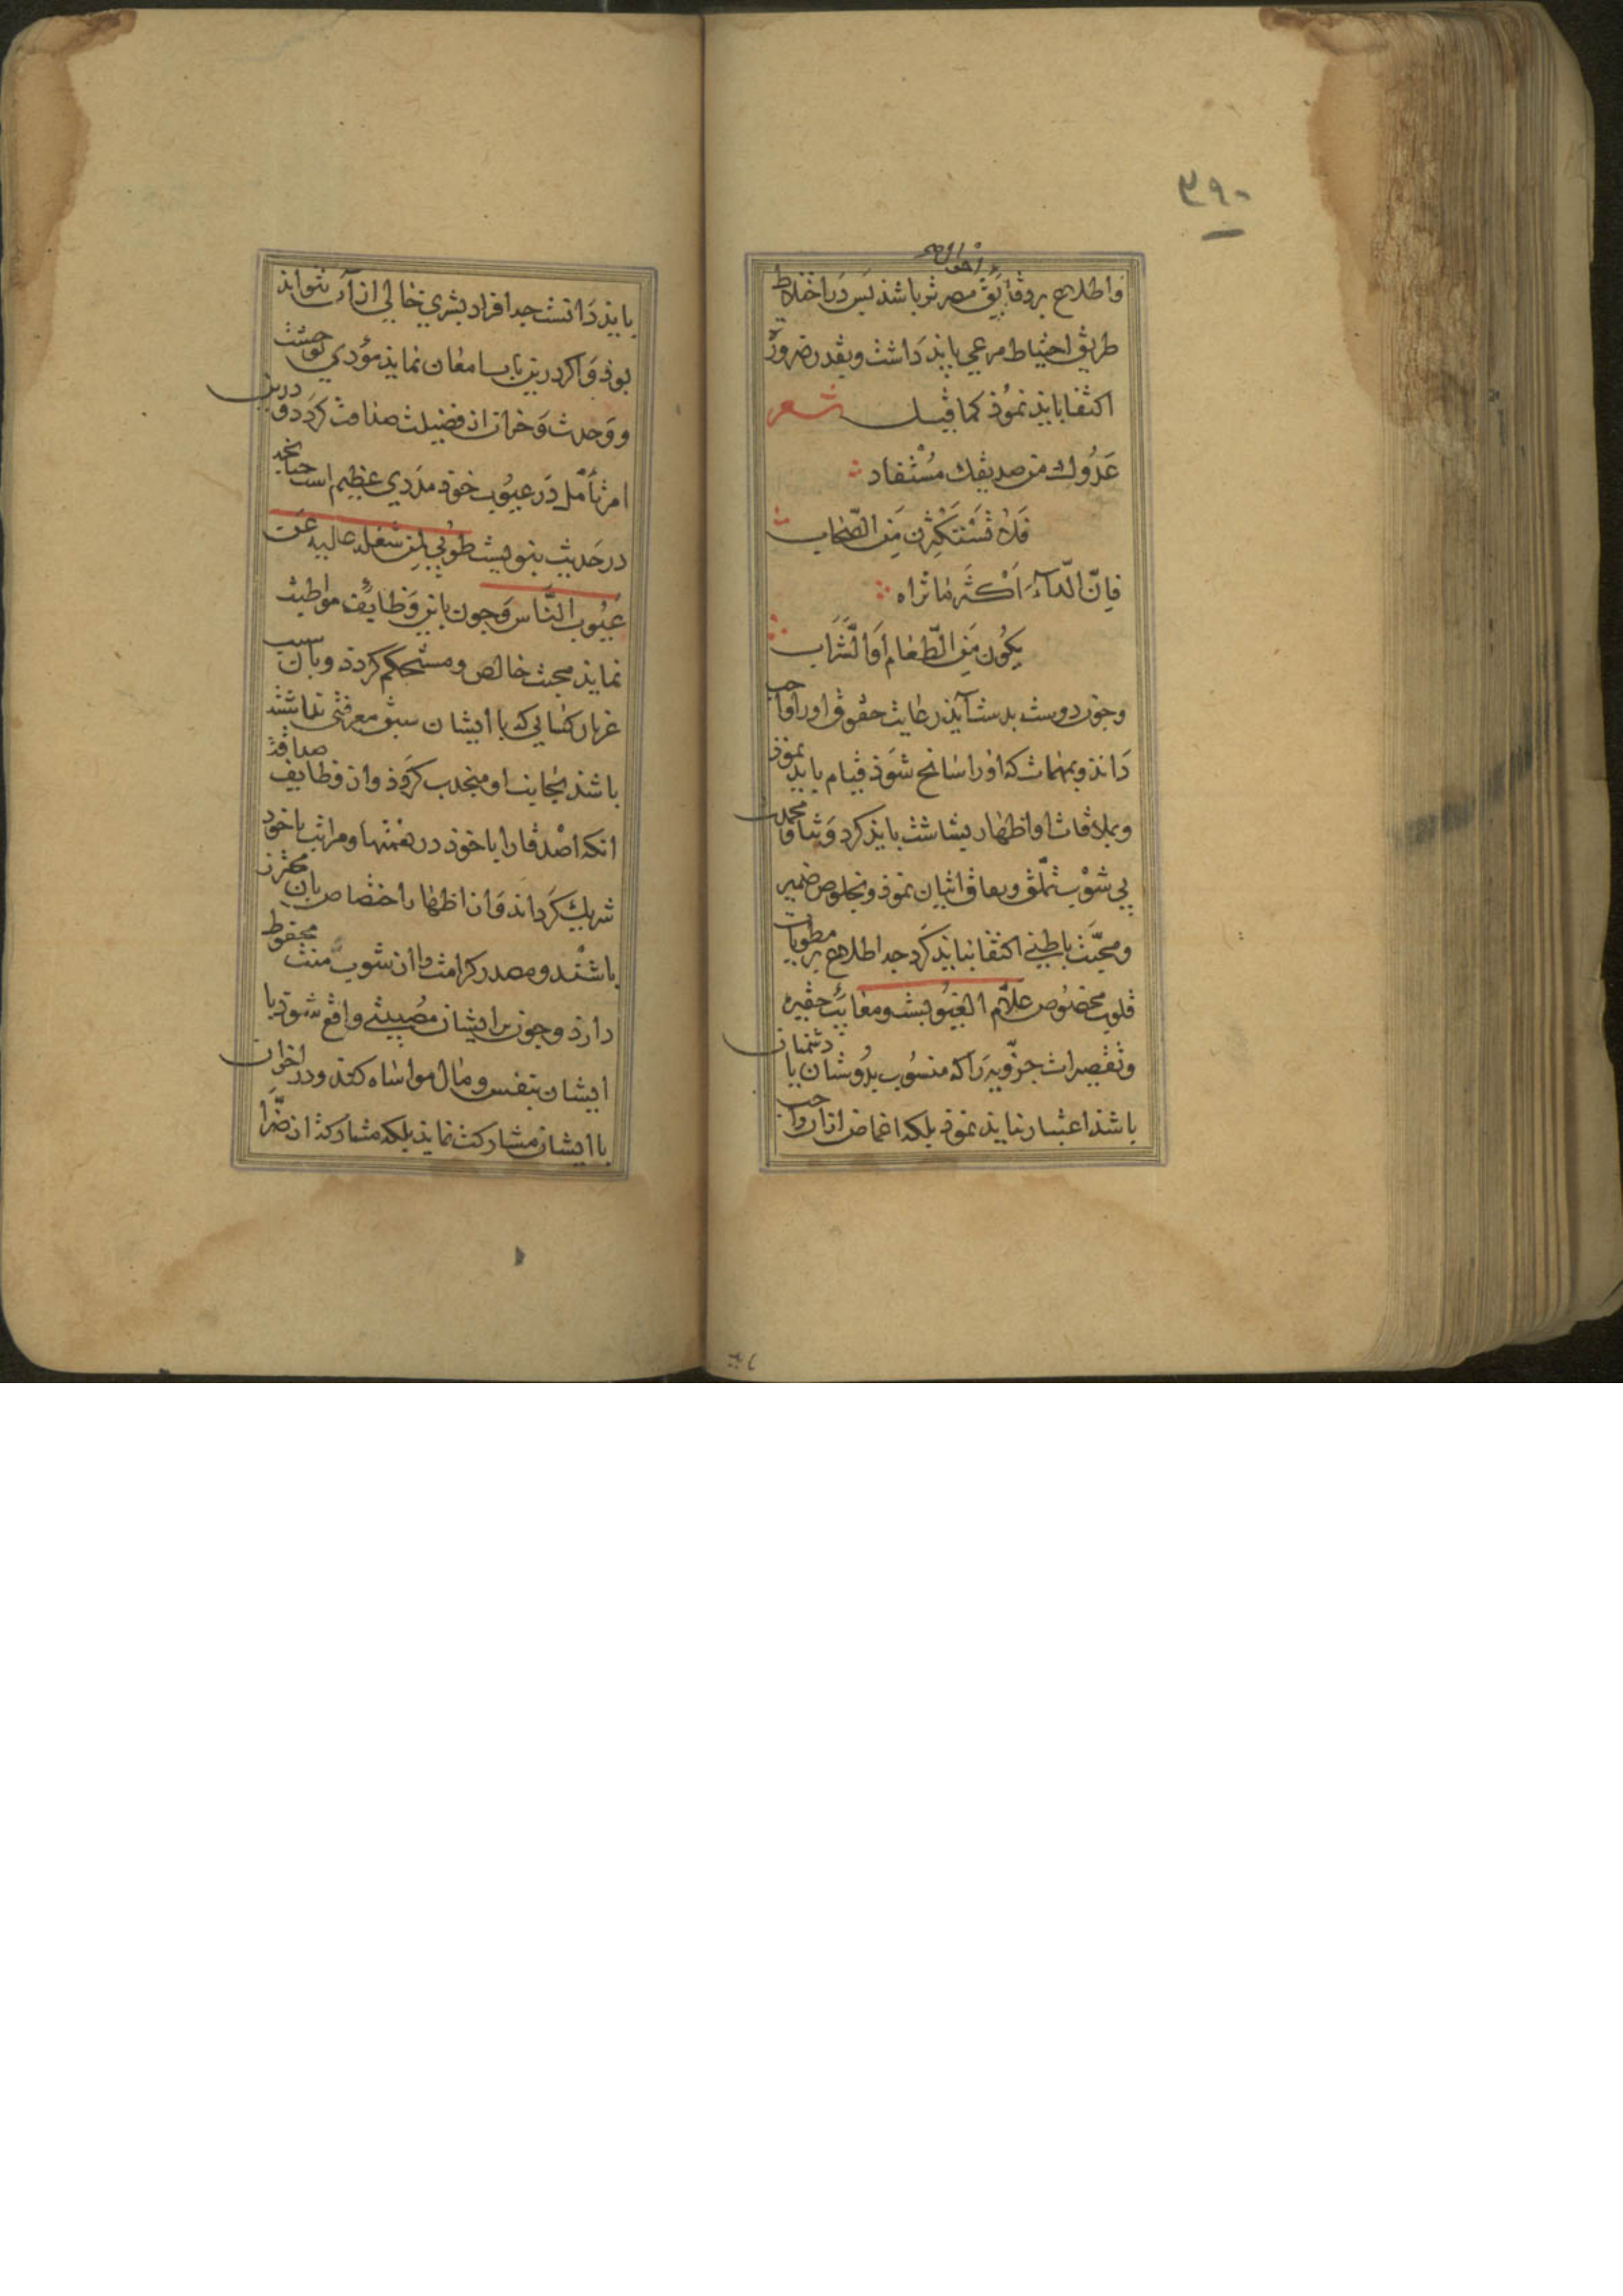 ۳۹۰
و اطلاع بر دقایق مضرت باشد پس در اختلاط
طریق احتیاط مرعی باید داشت و بقدر ضرورت
اکتفا باید نمود کما قیل شعر
عَدُوك من صدیقك مُسْتفاد
فَلَا تَسْتَکْثِرَن مِن الصِّحَاب
فَاِنَّ الدّآءَ اَکْثَر مَا تراه
یَکُون مِن الطَّعَام اَو الشَّرَاب
و چون دوست بدست آید رعایت حقوق او را واجب
داند و بمهمات که او را سانح شود قیام باید نمود
و بملاقات او اظهار بشاشت باید کرد و ثنا و محمدت
بی شوب تملّق و نفاق اتیان نمود و بخلوص ضمیر
و محبّت باطنی اکتفا نباید کرد چه اطلاع بر مطویات
قلوب مخصوص علّام الغیوبست و معایب حقیره
و تقصیرات جزویه را که منسوب بدوستان یا دشمنان
باشد اعتبار نباید نمود بلکه اغماض از آن واجب
باید دانست چه افراد بشری خالی از آن نتواند
بود و اگر درین باب امعان نماید مؤدی بوحشت
و وحدت و حرمان از فضیلت صداقت گردد و درین
امر تأمل در عیوب خود مددی عظیم است چنانچه
در حدیث نبویست طوبی لمن شغله عالیبه عن
عیوب الناس و چون باین وظایف مواظبت
نماید محبت خالص و مستحکم گردد و بآن سبب
غریبان کسانی که با ایشان سبق معرفتی نداشته
باشند بجانب او منجذب گردد و از وظایف صداقت
انکه اصدقا را با خود در نعمتها و مراتب با خود
شریك گرداند و از اظهار اختصاص بآن محترز
باشند و مصدر کرامت را از شوب منت محفوظ
دارد و چون بر ایشان مصیبتی واقع شود با
ایشان بنفس و مال مواساه کند و در اخزان
با ایشان مشارکت نماید بلکه مشارکت از ضرّا